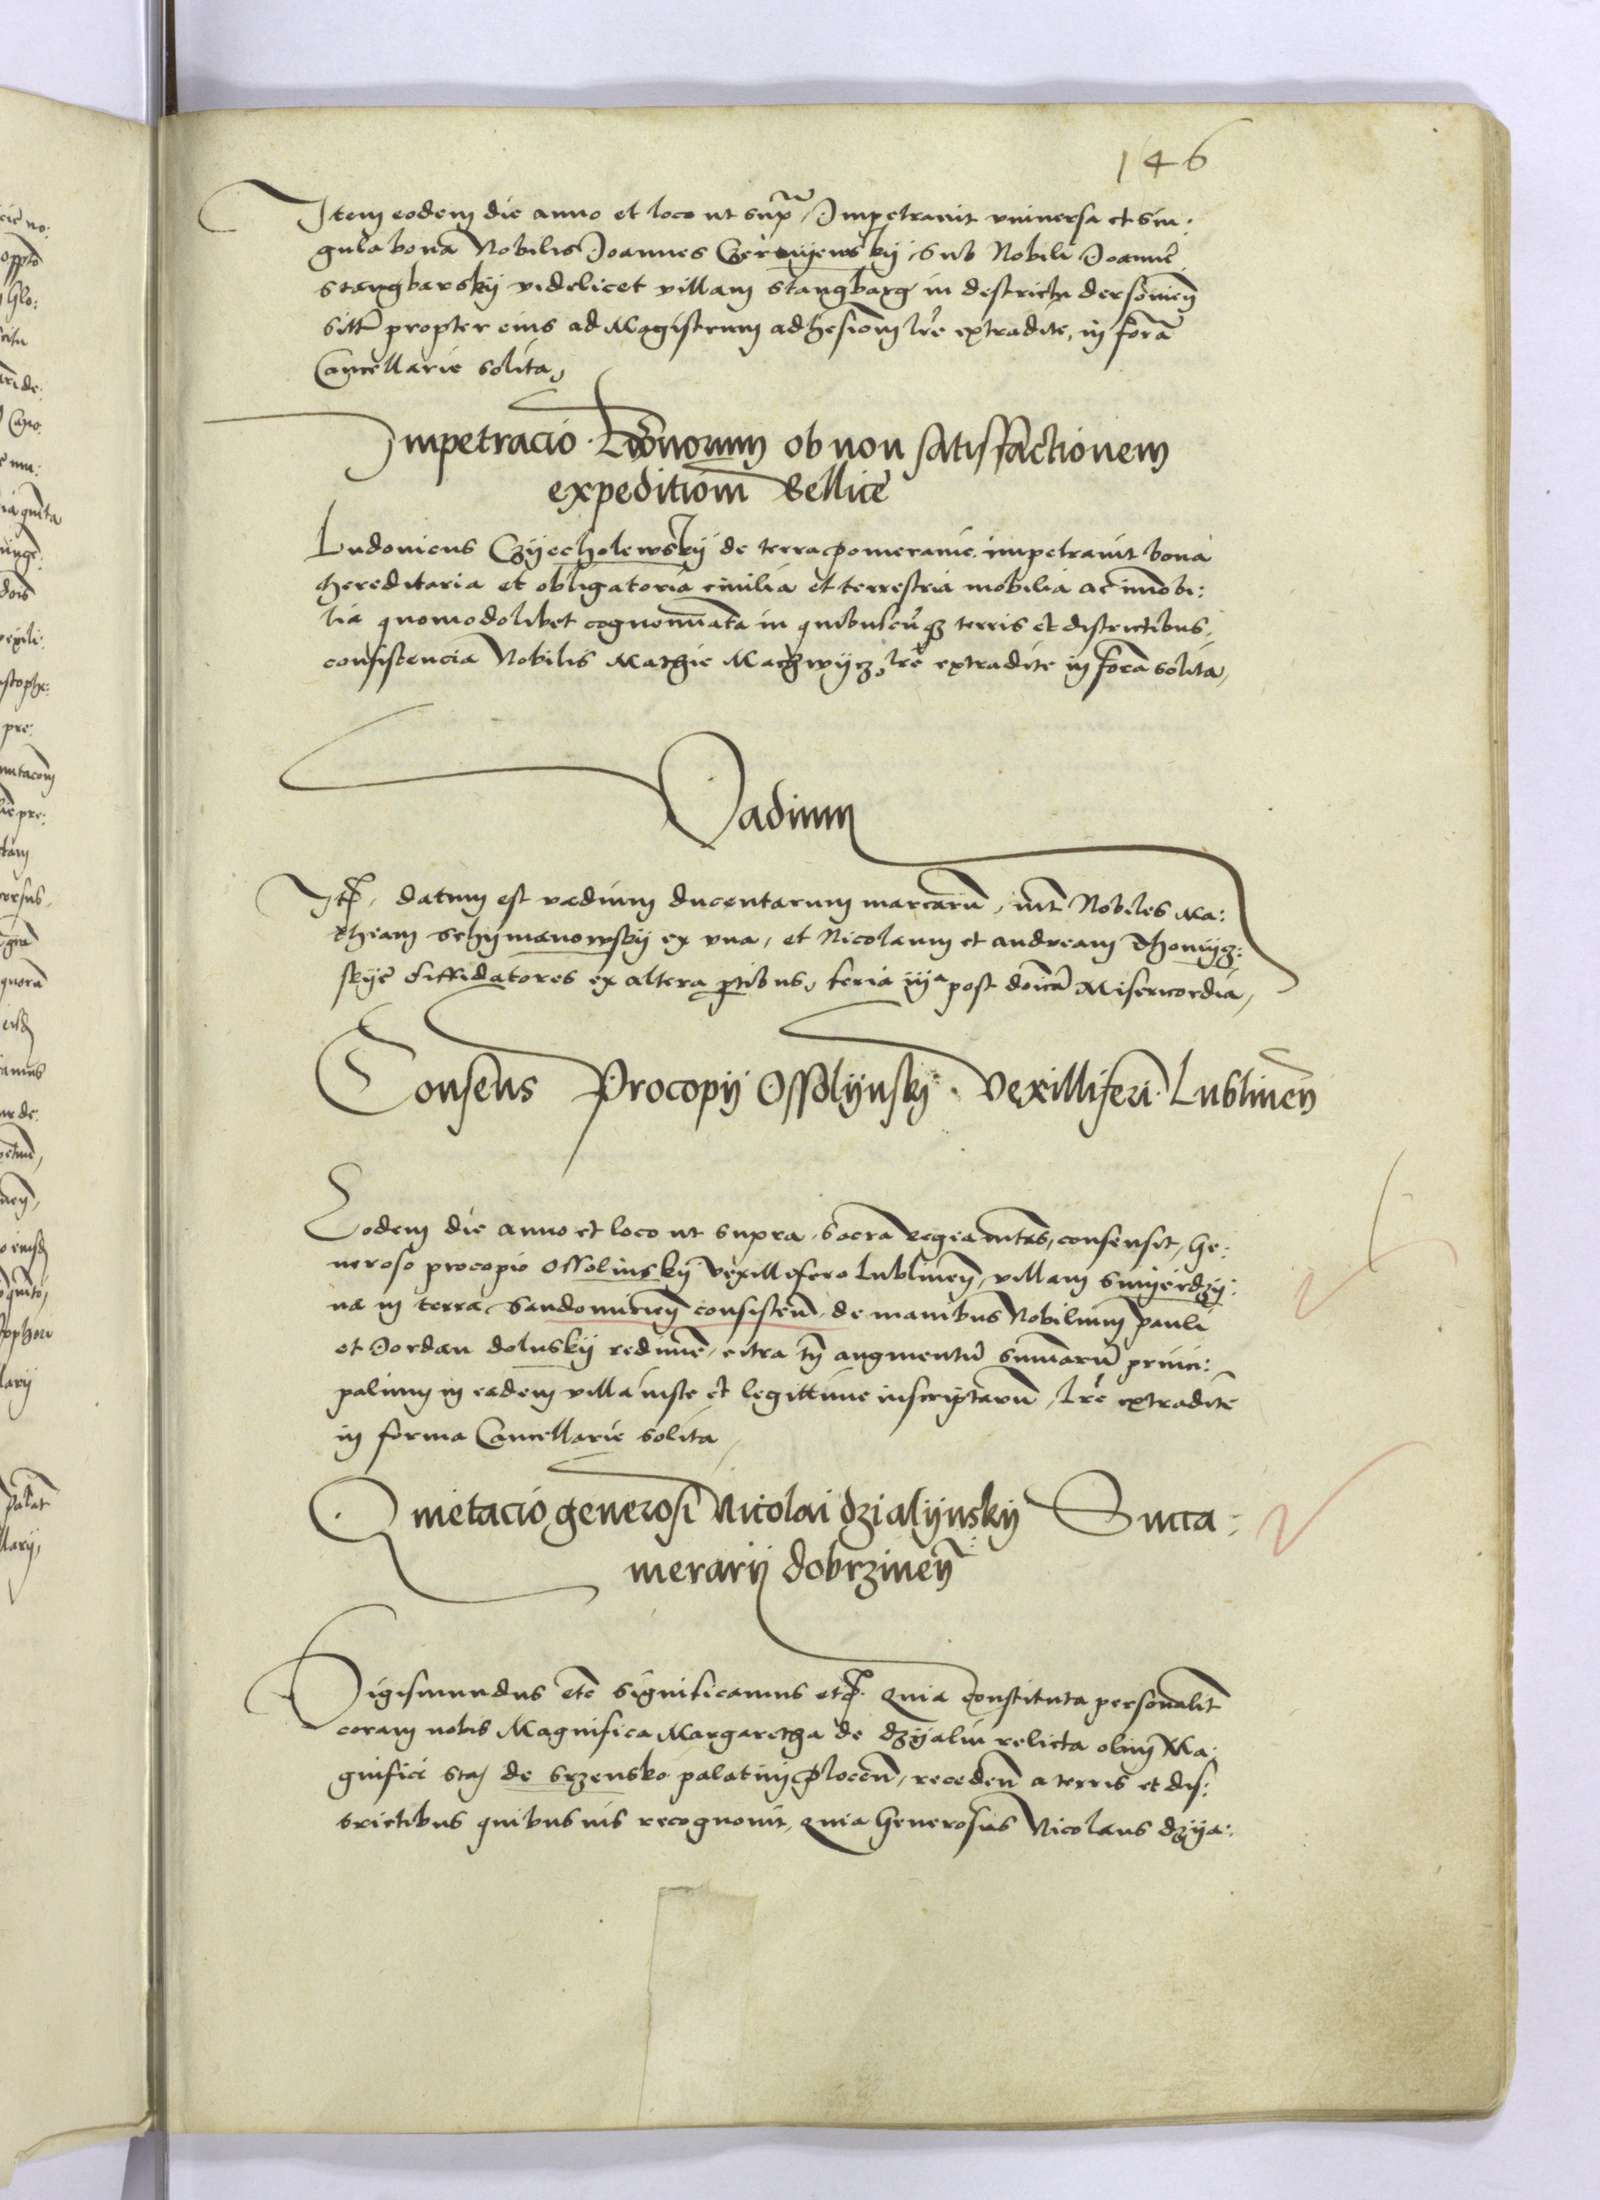 146
Item eodem die anno et loco ut supra Impetravit universa et sin:
gula bona Nobilis Joannes Czernyewskÿ sub Nobili Joanne
Stangbarskÿ videlicet villam Stangbarg in destrictu dersonien̄
sitā propter eius ad Magistrum adhesionem lrē extradite, in forā
Cancellarie solita,
Impetracio Bonorum ob non satisfactionem
expedition̄ Bellice
Ludovicus Czÿecholewskÿ de terra pomeranie impetravit bona
hereditaria et obligatoria civilia et terrestria mobilia ac imōbi:
lia quomodolibet cognominata in quibuscūqz terris et districtibus,
consistencia Nobilis Mathie Machwÿcz, lrē extradite in forā solita,
Vadium
Itē, datum est vadium ducentarum marcarū, intʼ Nobiles Ma:
theam Schÿmanowskÿ ex una, et Nicolaum et andream Thomÿcz:
skÿe diffidatores ex altera ptibus, feria iijª post doīcā Misericordia,
Consens Procopÿ Ossolÿnskÿ Vexilliferi Lublinen̄
Eodem die anno et loco ut supra, Sacra Regia mtās, consensit, Ge:
neroso procopio Ossolinskÿ vexillifero Lublinen̄, villam Smÿerdzÿ:
na in terra Sandomirien̄ consisten̄ de manibus Nobilium pauli
et Jordan doluskÿ redimē, citra tn̄ augmentū summarū princi:
palium in eadem villa iuste et legittime inscriptarū, lrē extradite
in forma Cancellarie solita,
Quietacio generosi Nicolai dzialÿnskÿ Succa:
merarÿ dobrzinen̄
Sigismundus etc̄ Significamus etc̄. Quia constituta personalitʼ
coram nobis Magnifica Margaretha de dzÿalin relicta olim Ma:
gnifici Staʼ de Srzensko palatini plocen̄, receden̄ a terris et dis:
trictibus quibusuis recognovit, quia Generosus Nicolaus dzÿa: